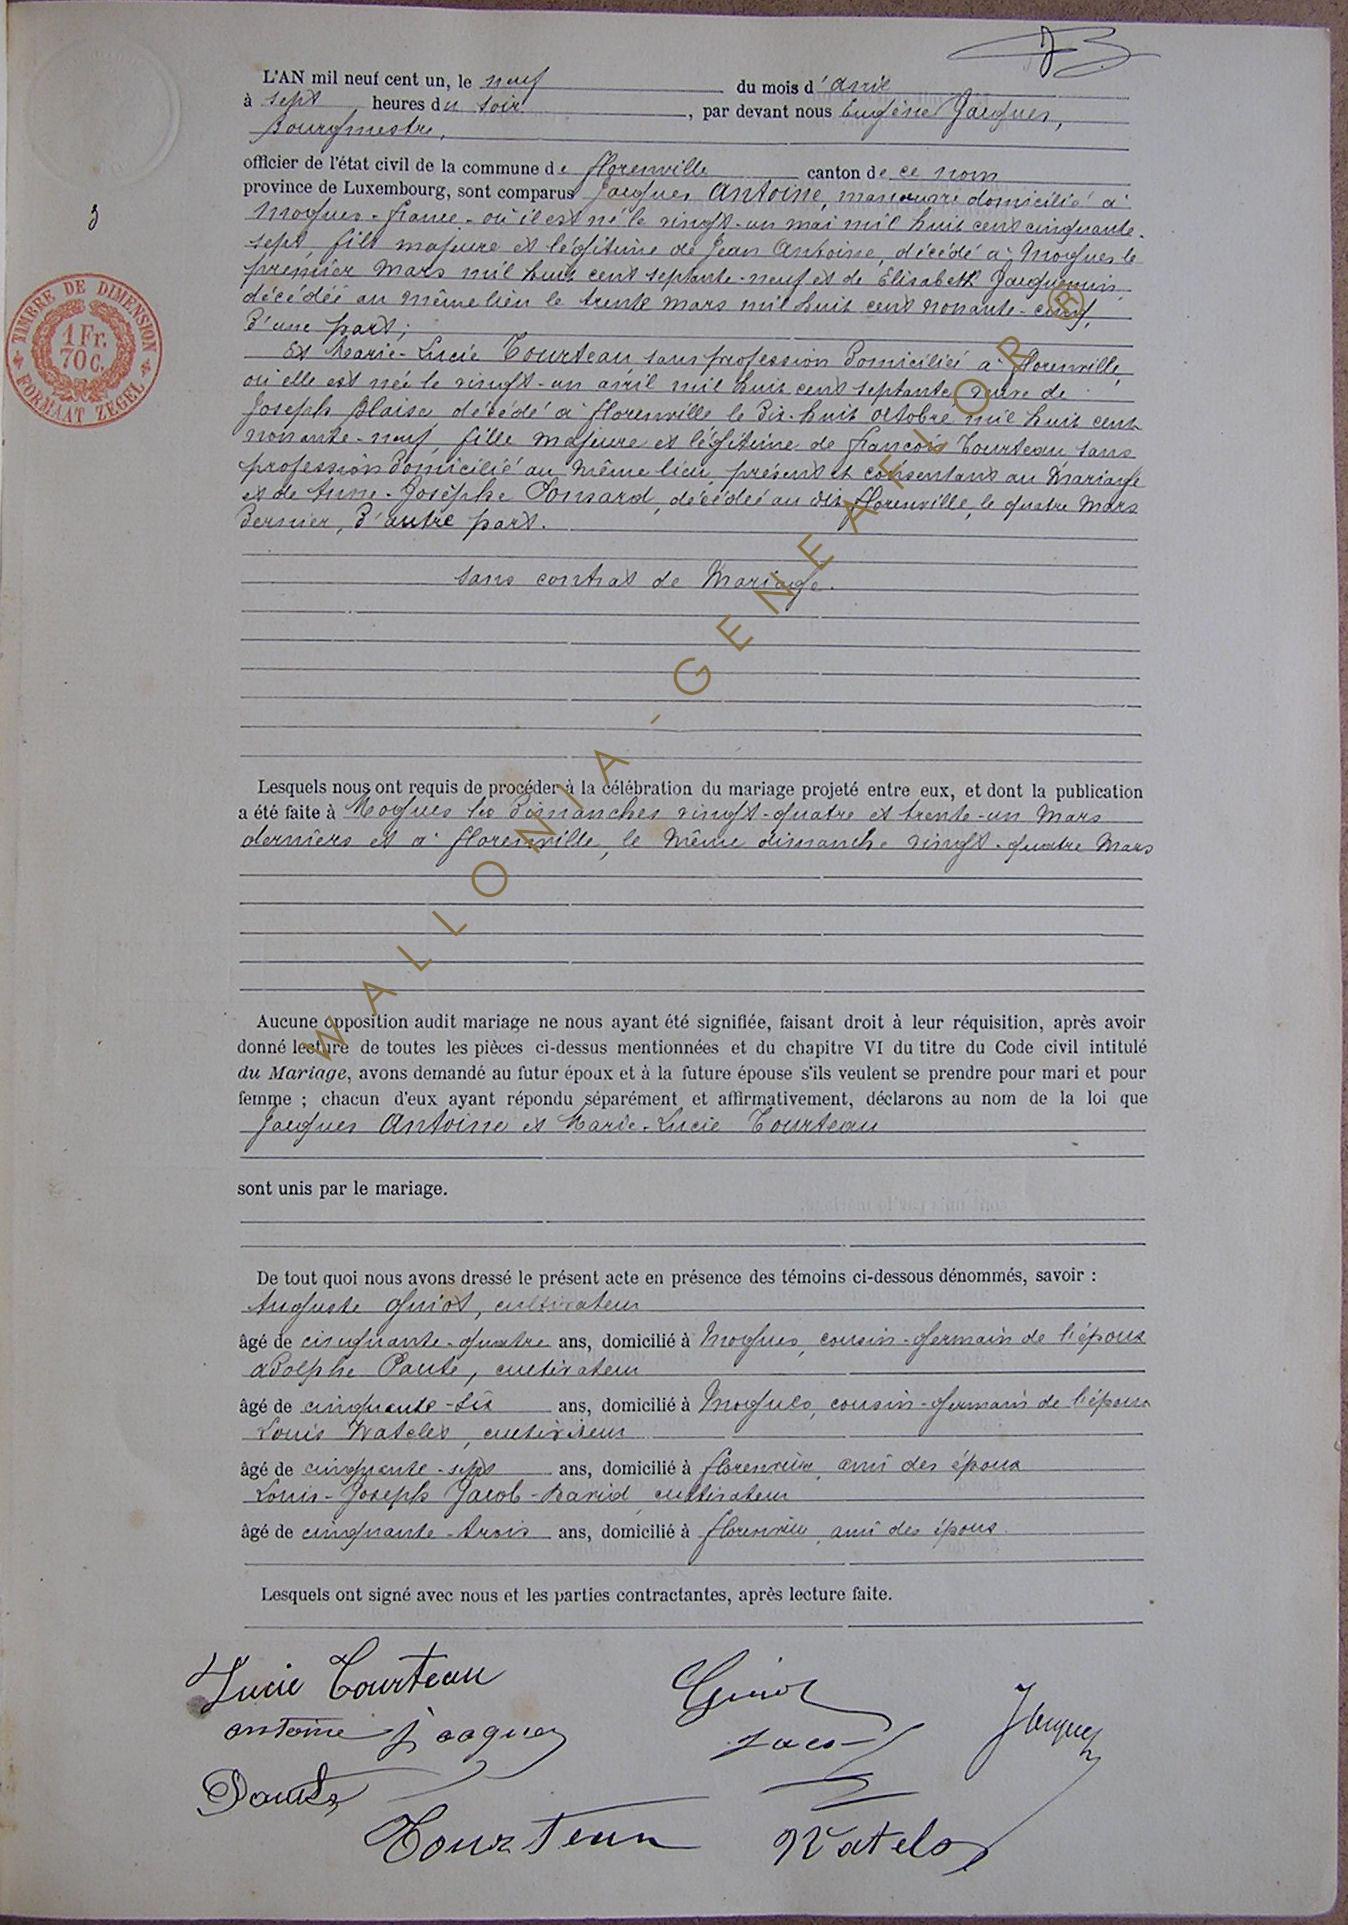 L'AN mil neuf cent un, le neuf du mois d'avril
à sept heures du soir, par devant nous Eugène Jacques,
Bourgmestre,
officier de l'état civil de la commune de Florenville canton de ce nom
province de Luxembourg, sont comparus Jacques Antoine, manœuvre domicilié à
Mogues-France-où il est né le vingt-un mai mil huit cent cinquante-
sept, fils majeure et légitime de Jean Antoine, décédé à Mogues le
premier Mars mil huit cent septante-neuf et de Elisabeth Jacquemin
décédée au même lieu le trente mars mil huit cent nonante-cinq,
d'une part;
Et Marie-Lucie Tourteau, sans profession domiciliée à Florenville
où elle est née le vingt-un avril mil huit cent septante, veuve de
Joseph Blaise, décédé à Florenville le dix-huit octobre mil huit cent
nonante-neuf, fille majeure et légitime de François Tourteau sans
profession domicilié au même lieu, présent et consentant au Mariage
et de Anne-Josèphe Ponsard, décédée au dit Florenville, le quatre Mars
dernier, d'autre part.
sans contrat de Mariage.
Lesquels nous ont requis de procéder à la célébration du mariage projeté entre eux, et dont la publication
a été faite à Mogues les dimanches vingt-quatre et trente-un Mars
derniers et à Florenville, le même dimanche vingt-quatre Mars
Aucune opposition audit mariage ne nous ayant été signifiée, faisant droit à leur réquisition, après avoir
donné lecture de toutes les pièces ci-dessus mentionnées et du chapitre VI du titre du Code civil intitulé
du Mariage, avons demandé au futur époux et à la future épouse s'ils veulent se prendre pour mari et pour
femme ; chacun d'eux ayant répondu séparément et affirmativement, déclarons au nom de la loi que
Jacques Antoine et Marie-Lucie Tourteau
sont unis par le mariage.
De tout quoi nous avons dressé le présent acte en présence des témoins ci-dessous dénommés, savoir :
Auguste Guiot, cultivateur
âgé de cinquante-quatre ans, domicilié à Mogues, cousin-germain de l'époux
Adolphe Pauté, cultivateur
âgé de cinquante-six ans, domicilié à Mogues, cousin-germain de l'époux
Louis Watelet, cultivateur
âgé de cinquante-sept ans, domicilié à Florenville, ami des époux
Louis-Joseph Jacob-David, cultivateur
âgé de cinquante-trois ans, domicilié à Florenville, ami des époux.
Lesquels ont signé avec nous et les parties contractantes, après lecture faite.
Lucie Tourteau
Guiot
antoine jacques
Jacob
Jacques
Tourteau
Watelet
3
TIMBRE DE DIMENSION
1 Fr.
70 C.
FORMAAT ZEGEL
WALLONIA-GENEAFLOR®